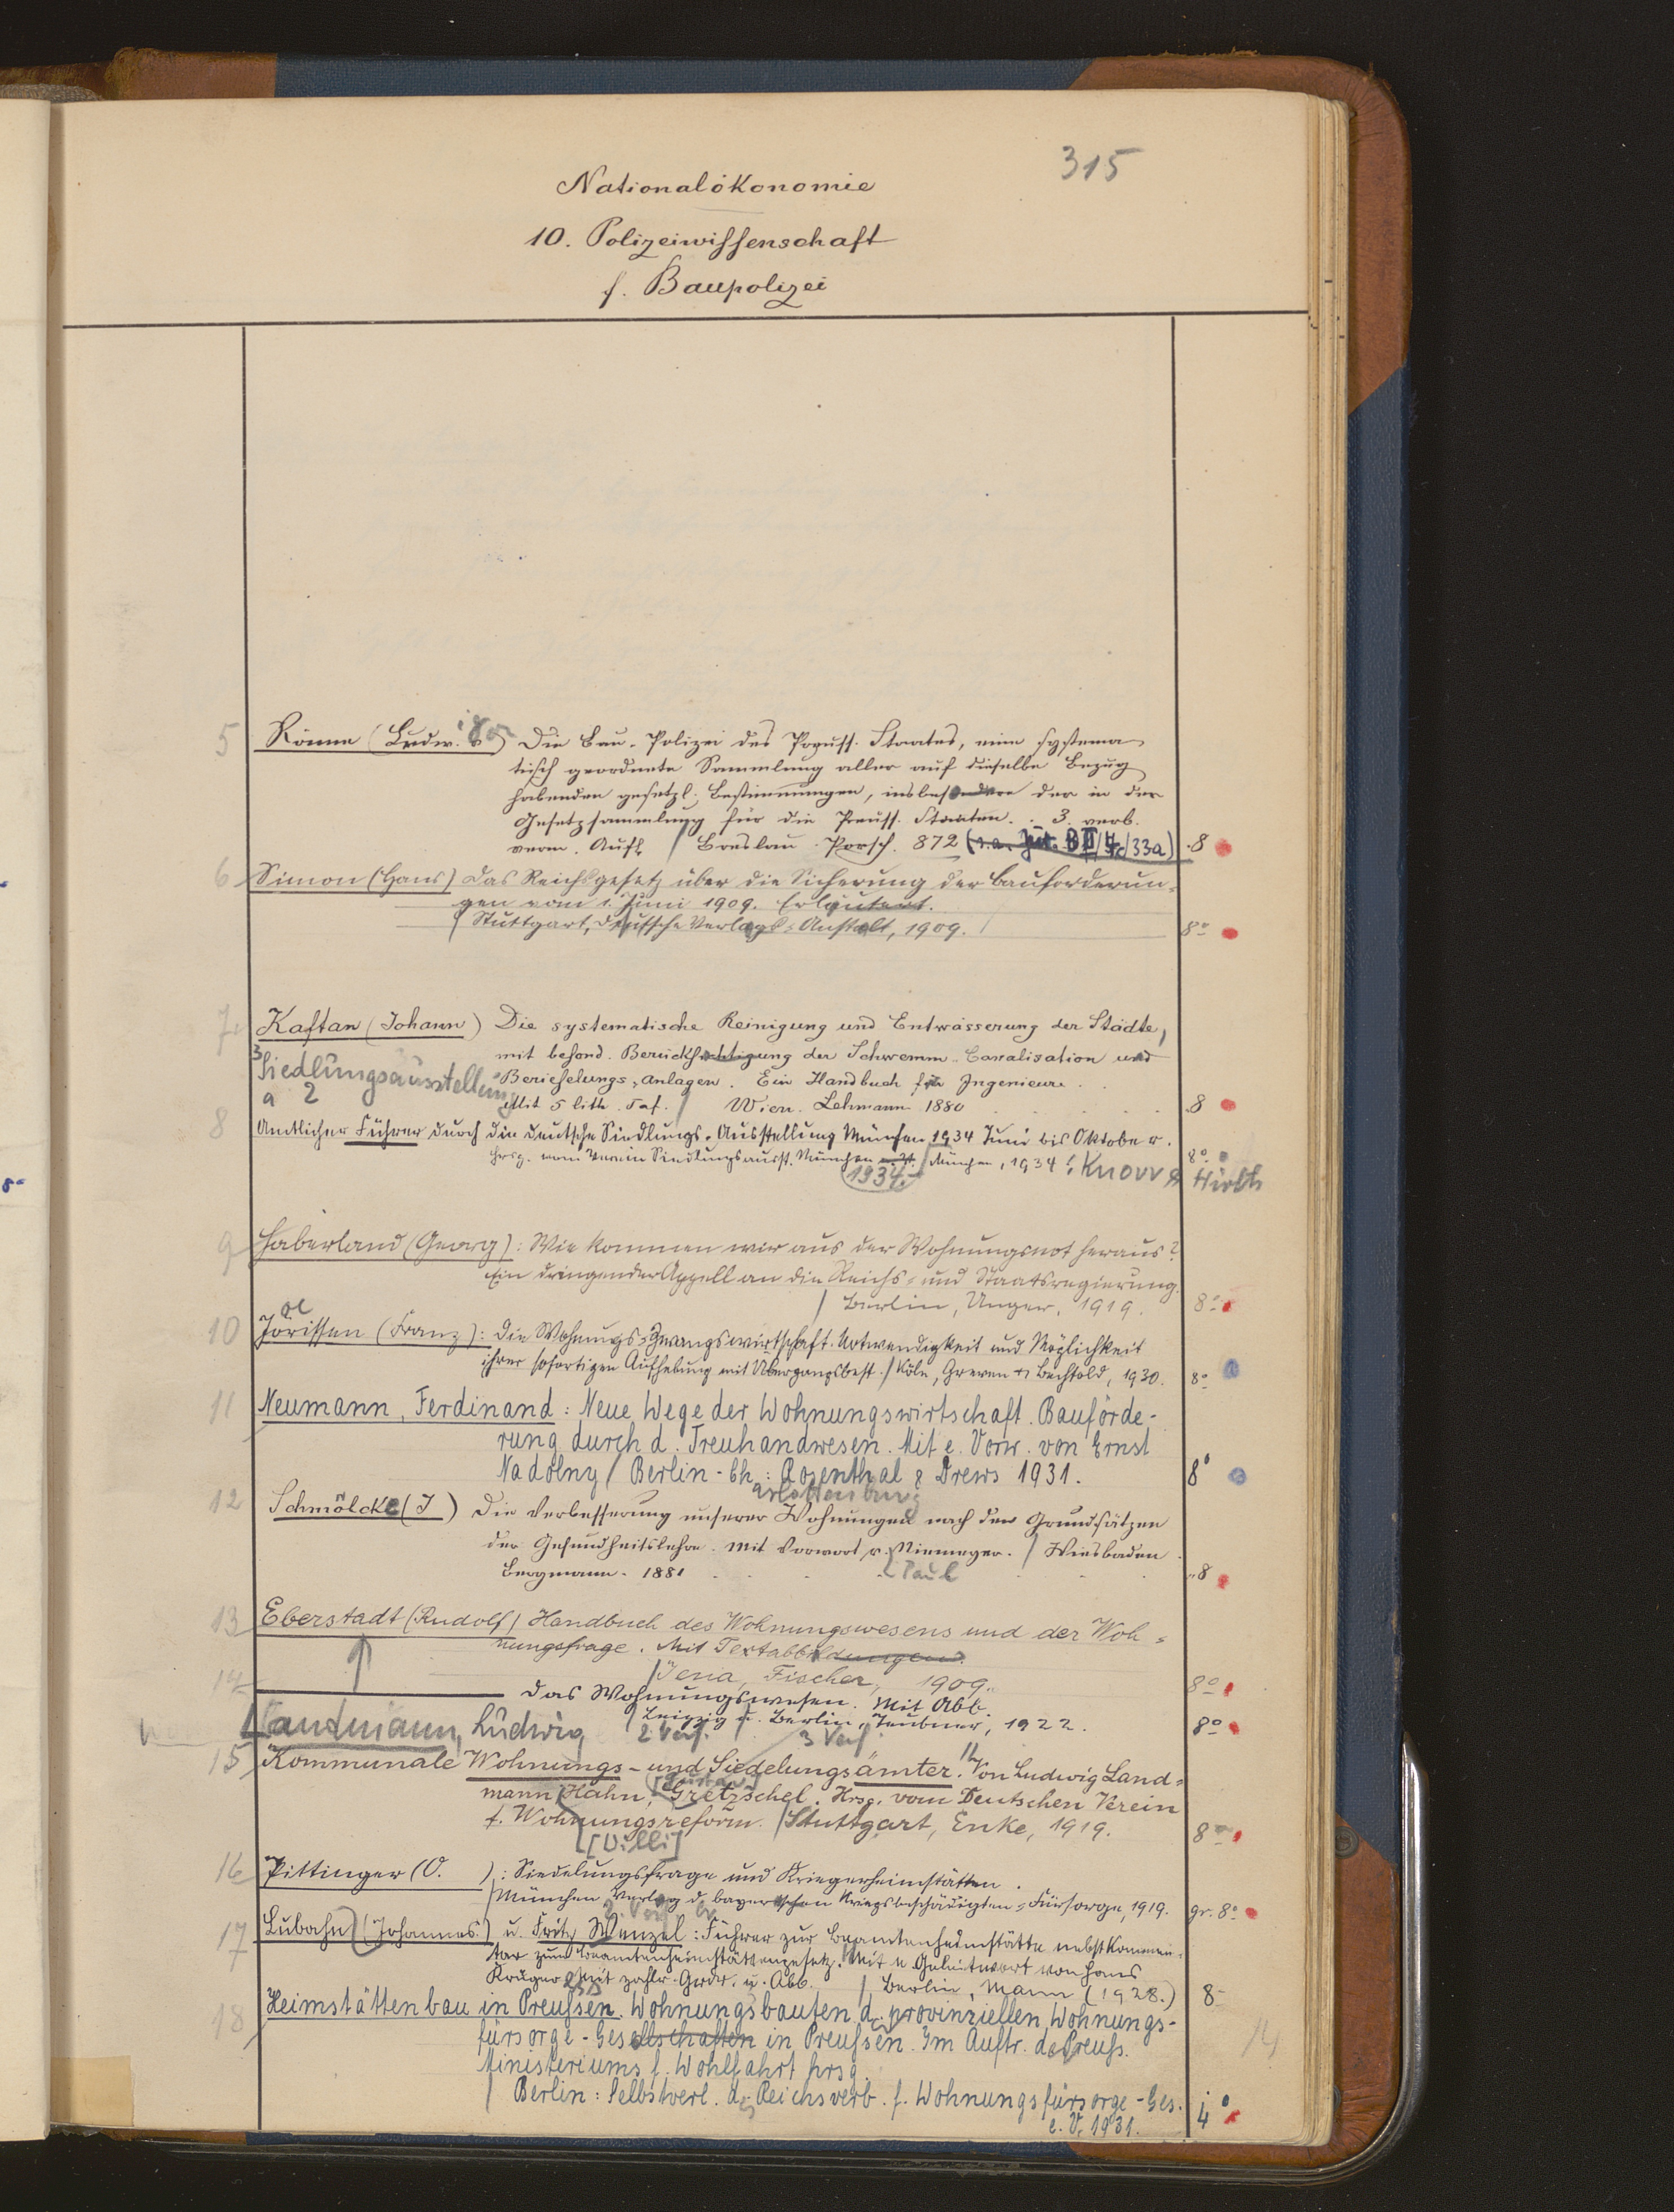 315
Nationalökonomie
10. Polizeiwissenschaft
f. Baupolizei
5 Rönne (Ludw. v.) Die Bau-Polizei des Preuss. Staates, eine systema
tisch geordnete Sammlung aller auf dieselbe Bezug
habenden gesetzl. Bestimmungen, insbesondere der in der
Gesetzsammlung für die Preuss. Staaten. . 3. verb.
verm. Aufl / Breslau. Porsch. 872 (s.a. Jur. B II/4c/33a) .8
6 Simon (Hans) Das Reichsgesetz über die Sicherung der Bauforderun-
gen vom 1. Juni 1909. Erläutert.
/ Stuttgart, Deutsche Verlags-Anstalt, 1909. / 8°
7. Kaftan (Johann) Die systematische Reinigung und Entwässerung der Städte,
mit besond. Berücksichtigung der Schwemm-Canalisation und
3 Siedlungsausstellung Berieselungs-Anlagen. Ein Handbuch für Ingenieure . .
a 2 Mit 5 lith. Taf. / Wien. Lehmann 1880 .8
8 Amtlicher Führer durch die deutsche Siedlungs-Ausstellung München 1934 Juni bis Oktober.
Hrsg. vom Verein Siedlungsausst. München / München, 1934: Knorr & Hirth 8°
1934.
9 Haberland (Georg): Wie kommen wir aus der Wohnungsnot heraus?
Ein dringender Appell an die Reichs- und Staatsregierung.
/ Berlin, Unger, 1919. 8°
oe
10 Jörissen (Franz): Die Wohnungs-Zwangswirtschaft. Notwendigkeit und Möglichkeit
ihrer sofortigen Aufhebung mit Übergangsbest. / Köln, Greven & Bechtold, 1930. 8°
11 Neumann, Ferdinand: Neue Wege der Wohnungswirtschaft. Bauförde-
rung durch d. Treuhandwesen. Mit e. Vorw. von Ernst
Nadolny / Berlin-Ch.: Rosenthal & Drews 1931. 8°
arlottenburg
12 Schmölcke (J) Die Verbesserung unserer Wohnungen nach den Grundsätzen
der Gesundheitslehre. Mit Vorwort v. Niemeyer. / Wiesbaden
Bergmann. 1881 [Paul .8
13 Eberstadt (Rudolf) Handbuch des Wohnungswesens und der Woh-
nungsfrage. Mit Textabbildungen.
/ Jena, Fischer, 1909. 8°
14 Das Wohnungswesen. Mit Abb.
/ Leipzig u. Berlin, Teubner, 1922. 8°
Landmann, Ludwig 2. Verf. 3 Verf
15 Kommunale Wohnungs- und Siedelungsämter. Von Ludwig Land-
[Gustav]
mann, Hahn, Gretzschel. Hrsg. vom Deutschen Verein
f. Wohnungsreform. / Stuttgart, Enke, 1919. 8°
[Willi]
16 Pittinger (O. ): Siedelungsfrage und Kriegerheimstätten.
/ München Verlag d. bayerischen Kriegsbeschädigten-Fürsorge, 1919. gr. 8°
2. Verf
17 Lubahn (Johannes) u. Fritz Wenzel: Führer zur Beamtenheimstätte nebst Kommen-
tar zum Beamtenheimstättengesetz. Mit e Geleitwort von Hans
Krüger Mit zahlr. Grdr. u. Abb. / Berlin, Mann (1928.) 8°
18 Heimstättenbau in Preußen. Wohnungsbauten d. provinziellen Wohnungs-
fürsorge-Gesellschaften in Preußen. Im Auftr. d. Preuß.
Ministeriums f. Wohlfahrt hrsg.
14
/ Berlin: Selbstverl. d. Reichsverb. f. Wohnungsfürsorge-Ges.
e. V. 1931. 4°